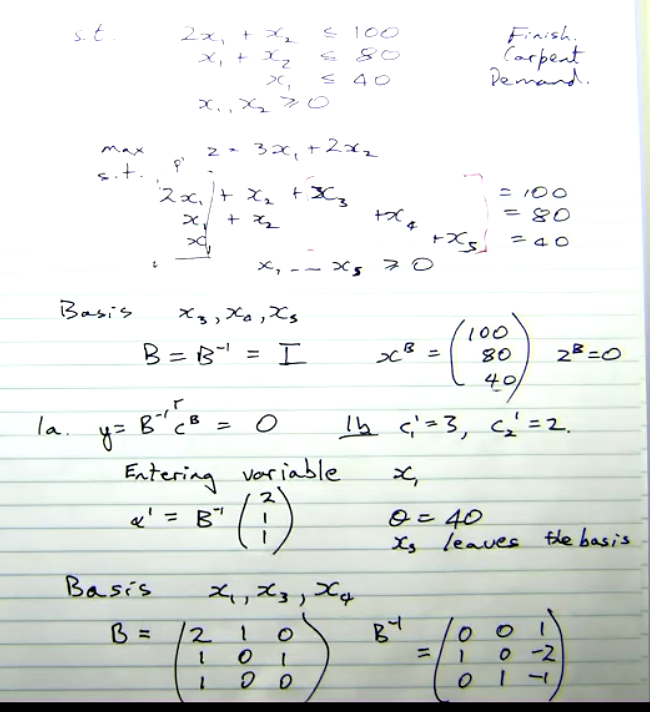 s.t. 2x₁ + x₂ ≤ 100 Finish.
x₁ + x₂ ≤ 80 Carpent
x₁ ≤ 40 Demand.
x₁, x₂ ≥ 0
max z = 3x₁ + 2x₂
s.t.
2x₁ + x₂ + x₃ = 100
x₁ + x₂ + x₄ = 80
x₁ + x₅ = 40
x₁ -- x₅ ≥ 0
Basis x₃, x₄, x₅
B = B⁻¹ = I xᴮ = (100 80 40) zᴮ = 0
1a. y = B⁻¹ᵀ cᴮ = 0 1b c₁' = 3, c₂' = 2.
Entering variable x₁
α' = B⁻¹ (2 1 1) θ = 40
x₅ leaves the basis
Basis x₁, x₃, x₄
B = (2 1 0 B⁻¹ = (0 0 1
1 0 1 1 0 -2
1 0 0) 0 1 -1)